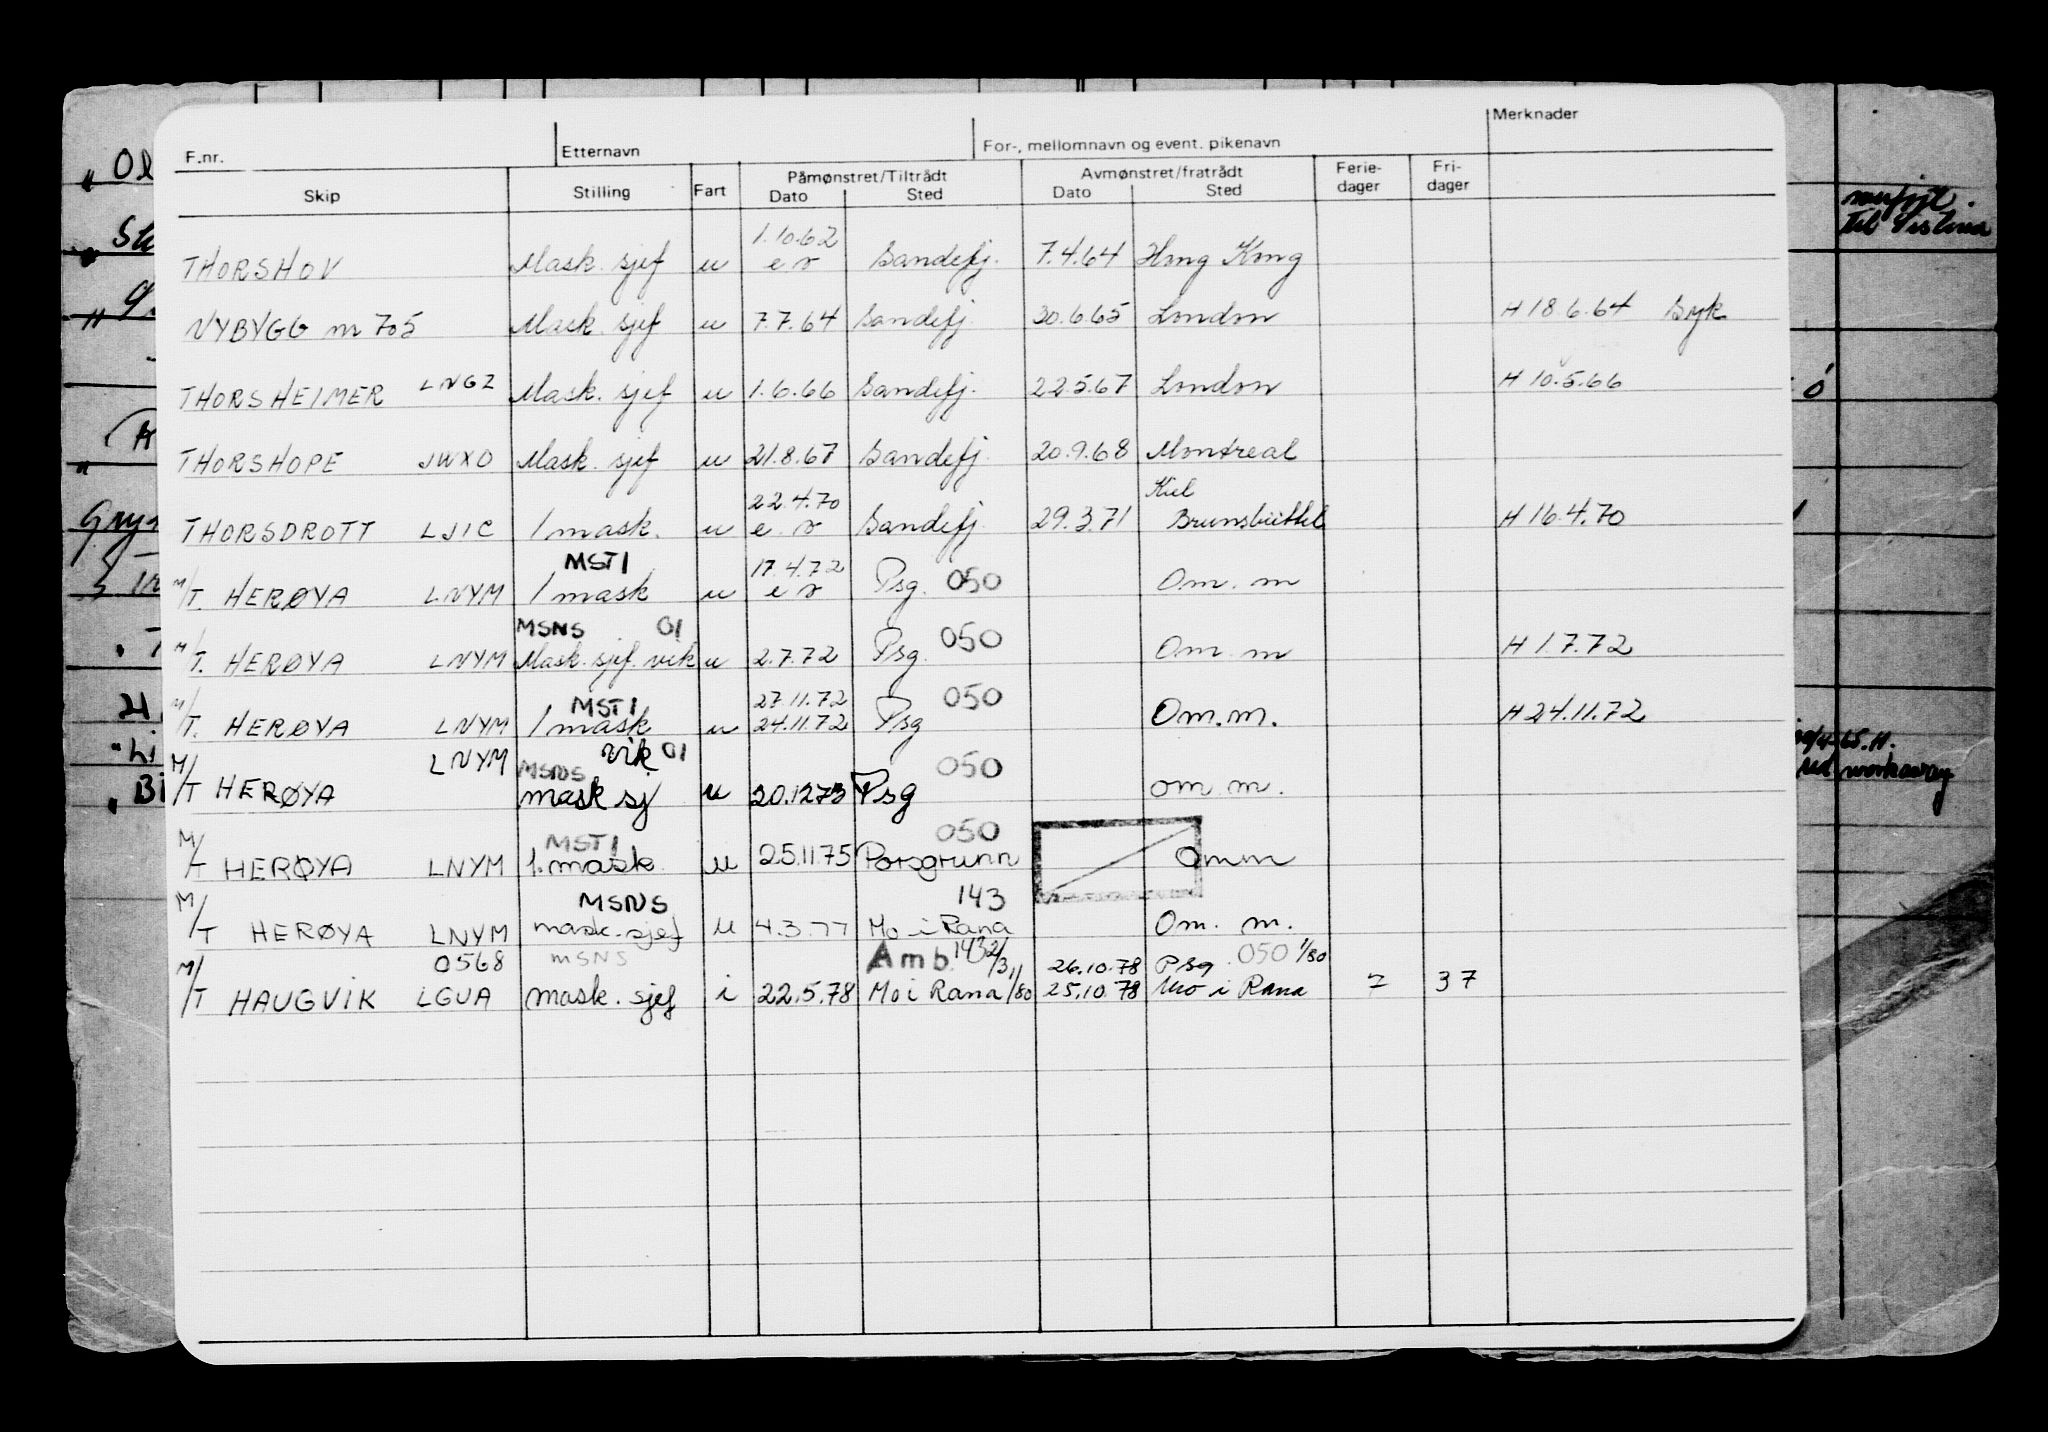 F.nr. Etternavn For-, mellomnavn og event. pikenavn Merknader
Skip Stilling Fart Påmønstret/Tiltrådt Dato Sted Avmønstret/fratrådt Dato Sted Ferie-dager Fri-dager
1.10.62
THORSHOV Mask. sjef u e r Sandefj. 7.4.64 Hong Kong
NYBYGG nr 705 Mask. sjef u 7.7.64 Sandefj. 30.6.65 London H 18.6.64 Syk
THORSHEIMER LNGZ Mask. sjef u 1.6.66 Sandefj. 22.5.67 London H 10.5.66
THORSHOPE JWXO Mask. sjef u 21.8.67 Sandefj. 20.9.68 Montreal
22.4.70 Kiel
THORSDROTT LJIC 1 mask. u e. r Sandefj. 29.3.71 Brunsbüttel H 16.4.70
MST1 17.4.72
M/T. HERØYA LNYM 1 mask u e r Psg. 050 Om. m
MSNS 01 050
M/T. HERØYA LNYM Mask. sjef. vik u 2.7.72 Psg. Om. m H 1.7.72
MST1 27.11.72 050
M/T. HERØYA LNYM 1 mask u 24.11.72 Psg Om.m. H 24.11.72
LNYM vik 01
MSNS 050
M/T HERØYA mask sj u 20.12 73 Psg om m.
MST1 050
M/T HERØYA LNYM 1. mask. u 25.11.75 Porsgrunn Omm
MSNS 143
M/T HERØYA LNYM mask. sjef u 4.3.77 Mo i Rana Om. m.
0568 MSNS Amb. 143 2/3 26.10.78 Psg. 050 1/80
M/T HAUGVIK LGUA mask. sjef i 22.5.78 Mo i Rana 1/80 25.10.78 Mo i Rana 7 37
til
workaway